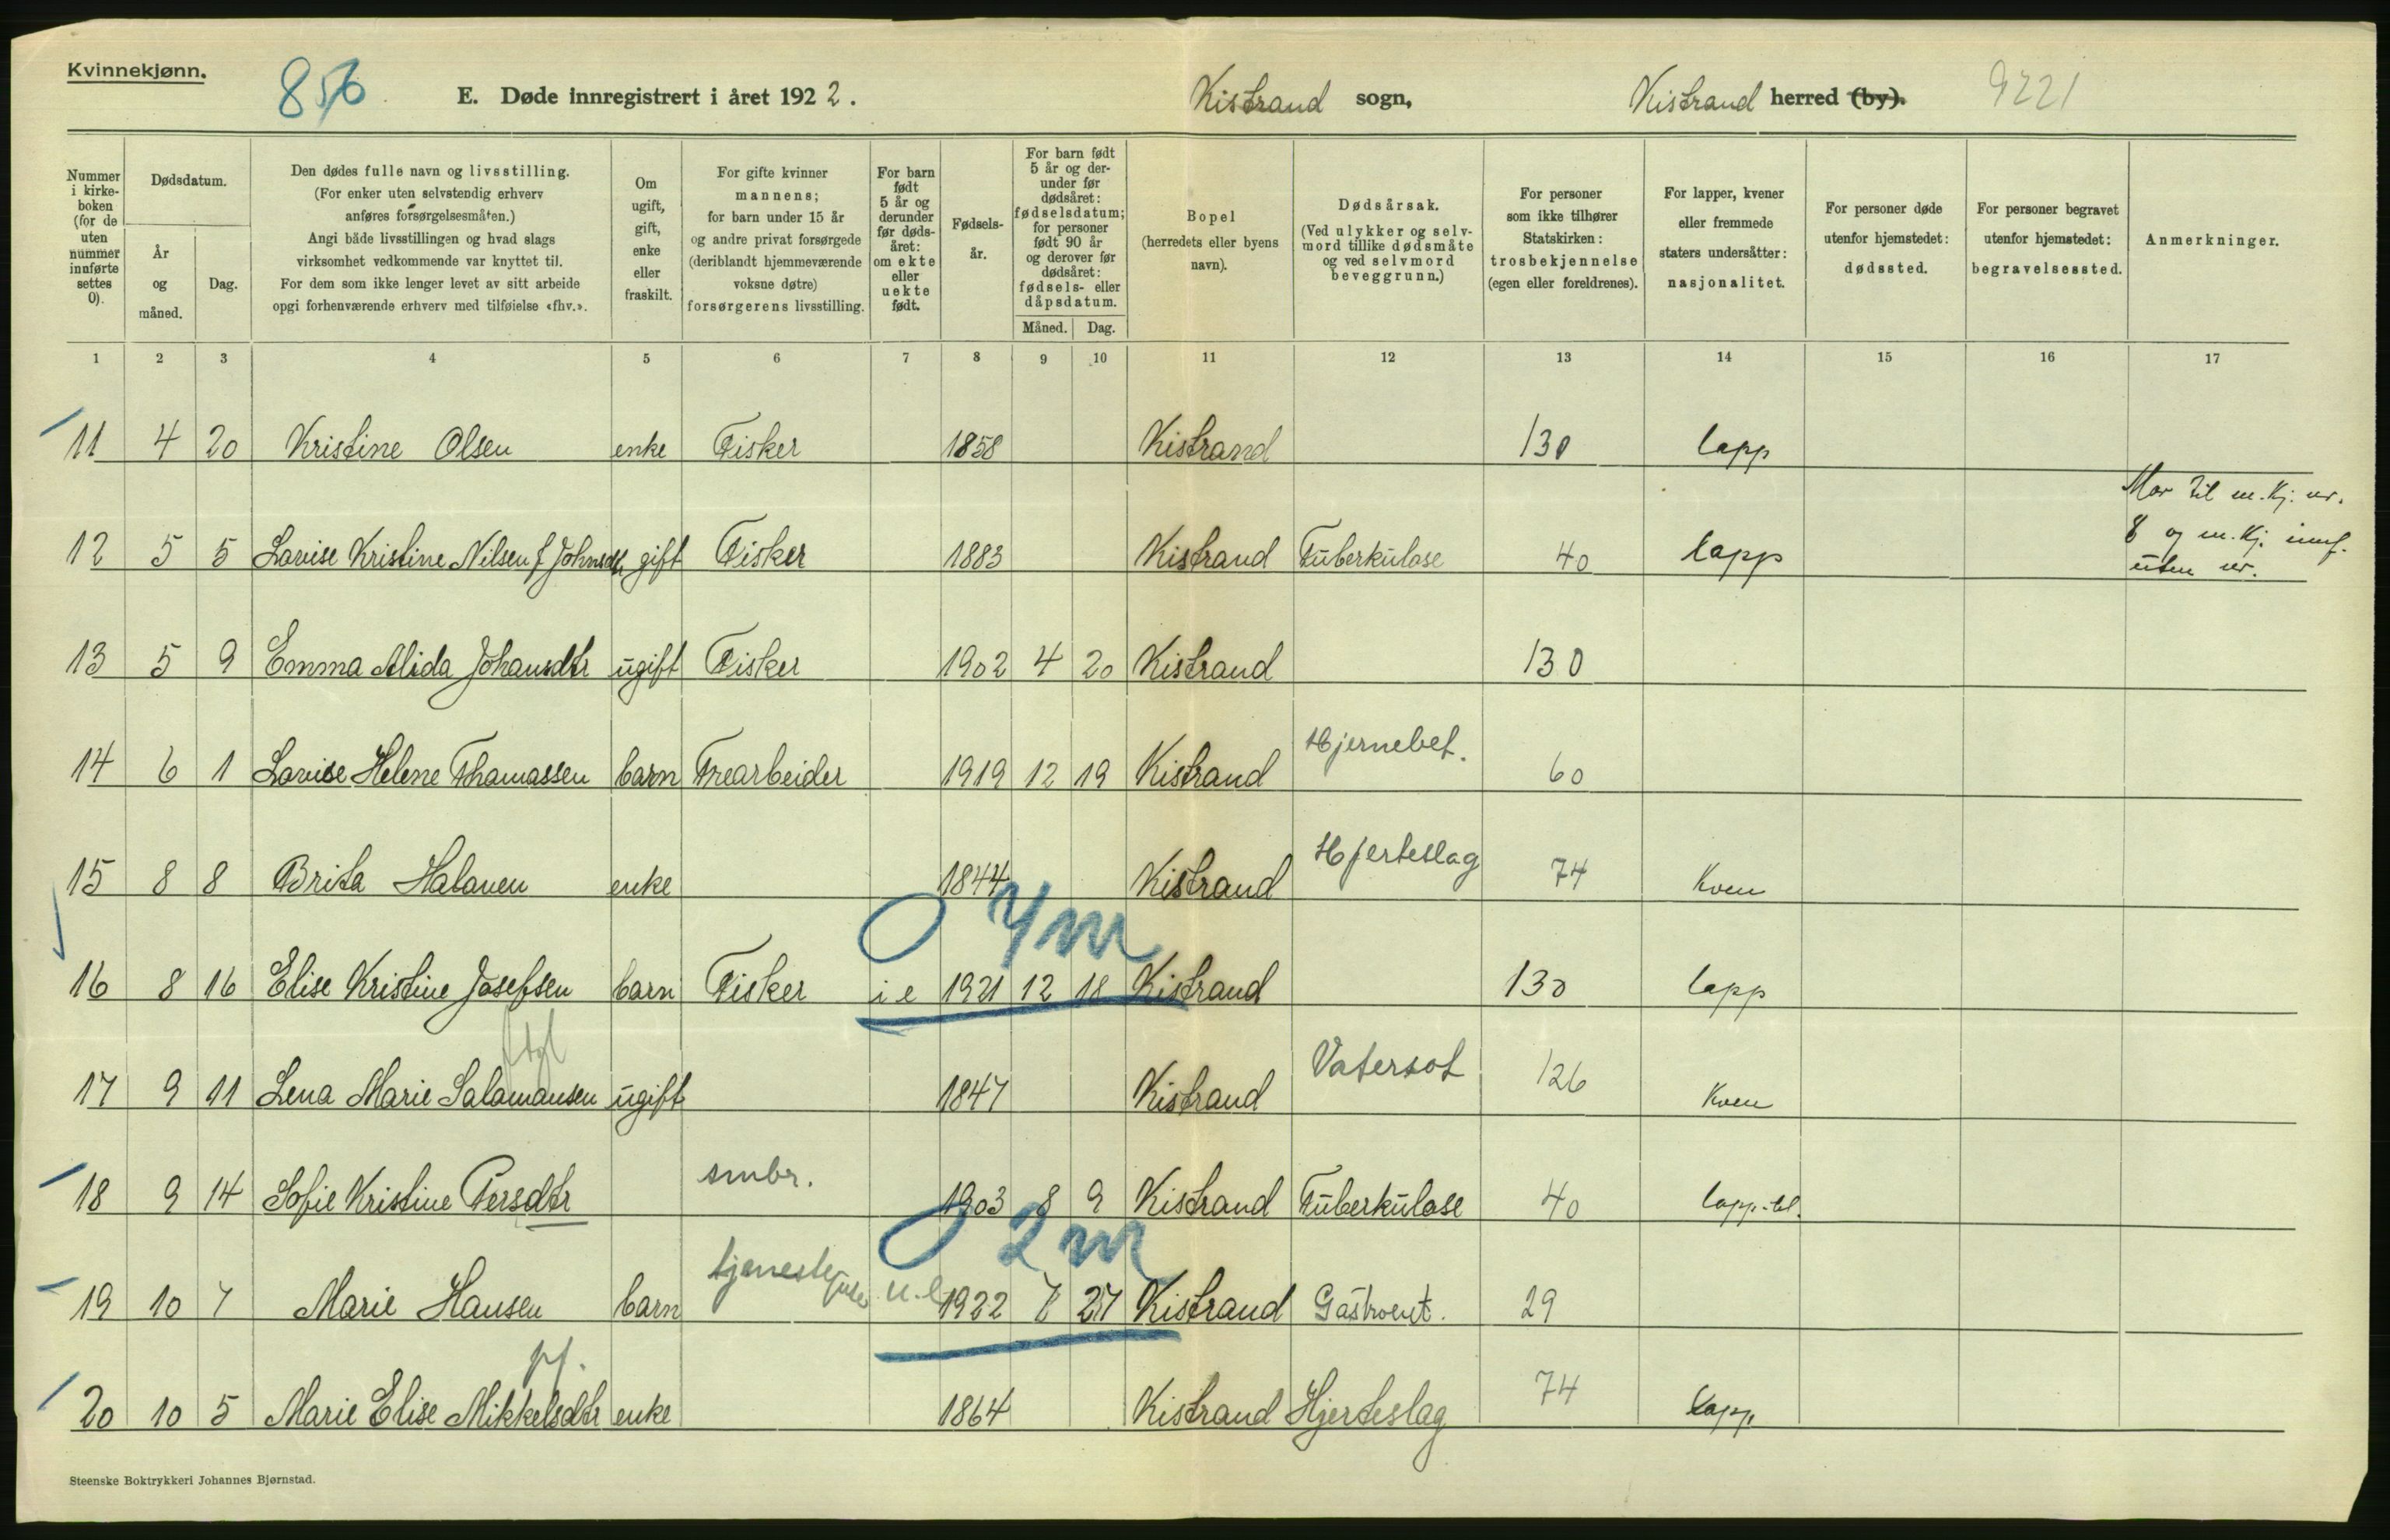 Kvinnekjønn.
856
E. Døde innregistrert i året 1922.
Kistrand sogn,
Kistrand herred (by).
9221
Nummer i kirke-boken (for de uten nummer innførte settes 0).
Dødsdatum.
År og måned.
Dag.
Den dødes fulle navn og livsstilling.
(For enker uten selvstendig erhverv
anføres forsørgelsesmåten.)
Angi både livsstillingen og hvad slags
virksomhet vedkommende var knyttet til.
For dem som ikke lenger levet av sitt arbeide
opgi forhenværende erhverv med tilføielse «fhv.».
Om ugift, gift, enke eller fraskilt.
For gifte kvinner
mannens;
for barn under 15 år
og andre privat forsørgede
(deriblandt hjemmeværende
voksne døtre)
forsørgerens livsstilling.
For barn født 5 år og derunder før døds-året: om ekte eller uekte født.
Fødsels-år.
For barn født 5 år og der-under før dødsåret: fødselsdatum; for personer født 90 år og derover før dødsåret: fødsels- eller dåpsdatum.
Måned. Dag.
Bopel
(herredets eller byens
navn).
Dødsårsak.
(Ved ulykker og selv-
mord tillike dødsmåte
og ved selvmord
beveggrunn.)
For personer
som ikke tilhører
Statskirken:
trosbekjennelse
(egen eller foreldrenes).
For lapper, kvener
eller fremmede
staters undersåtter:
nasjonalitet.
For personer døde
utenfor hjemstedet:
dødssted.
For personer begravet
utenfor hjemstedet:
begravelsessted.
Anmerkninger.
1 2 3 4 5 6 7 8 9 10 11 12 13 14 15 16 17
11 4 20 Kristine Olsen enke Fisker 1858 Kistrand 130 lapp
Mor til m.kj. nr.
8 og m.kj. innf.
uten nr.
12 5 5 Lovise Kristine Nilsen f Johnsdtr gift Fisker 1883 Kistrand Tuberkulose 40 lapp
13 5 9 Emma Alida Johansdtr ugift Fisker 1902 4 20 Kistrand 130
14 6 1 Lovise Helene Thomassen barn Trearbeider 1919 12 19 Kistrand Hjernebet. 60
15 8 8 Brita Halonen enke 1844 Kistrand Hjerteslag 74 Kven
0 7m
16 8 16 Elise Kristine Josefsen barn Fisker i e 1921 12 18 Kistrand 130 lapp
17 9 11 Lena Marie Salamonsen ugift 1847 Kistrand Vatersot 126 Kven
18 9 14 Sofie Kristine Persdtr smbr. 1903 8 9 Kistrand Tuberkulose 40
0 2m
19 10 7 Marie Hansen barn tjenestepike u.e 1922 7 27 Kistrand Gastroent. 29
20 10 5 Marie Elise Mikkelsdtr enke 1864 Kistrand Hjerteslag 74 lapp.
Steenske Boktrykkeri Johannes Bjørnstad.